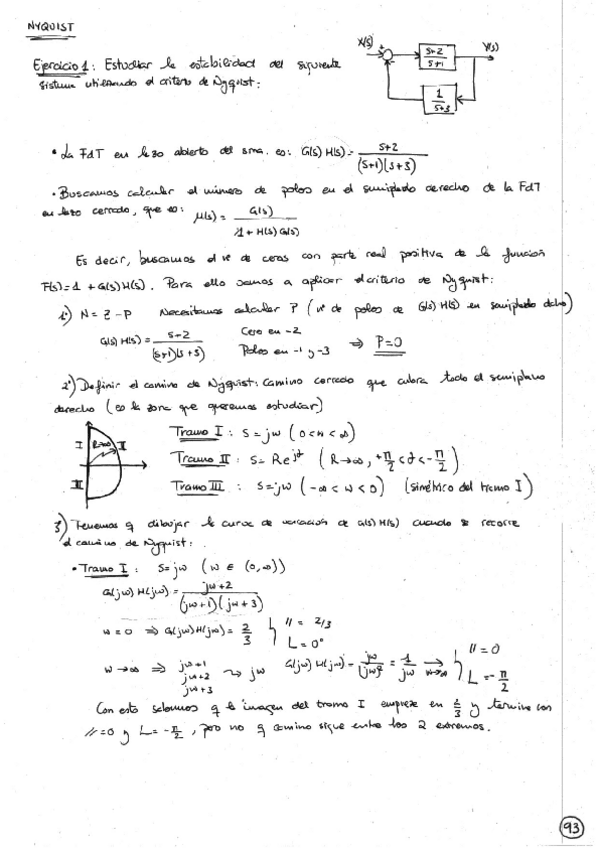 NYQUIST
Ejercicio 1: Estudiar la estabilidad del siguiente
sistema utilizando el criterio de Nyquist:
X(s) + - s+2 / s+1 Y(s)
1 / s+3
• La FdT en lazo abierto del sma. es: G(s) H(s) = s+2 / (s+1)(s+3)
• Buscamos calcular el número de polos en el semiplano derecho de la FdT
en lazo cerrado, que es: M(s) = G(s) / 1 + H(s) G(s)
Es decir, buscamos el nº de ceros con parte real positiva de la función
F(s) = 1 + G(s) H(s). Para ello vamos a aplicar el criterio de Nyquist:
1º) N = Z - P Necesitamos calcular P (nº de polos de G(s) H(s) en semiplano dcho)
G(s) H(s) = s+2 / (s+1)(s+3) Cero en -2 Polos en -1 y -3 ⇒ P=0
2º) Definir el camino de Nyquist: Camino cerrado que cubra todo el semiplano
derecho (es la zona que queremos estudiar)
I R=∞ II III
Tramo I : S = jw (0 < w < ∞)
Tramo II : S = Re^jα (R→∞, +π/2 < α < -π/2)
Tramo III : S = jw (-∞ < w < 0) (simétrico del tramo I)
3) Tenemos q dibujar la curva de variación de G(s) H(s) cuando s recorre
el camino de Nyquist:
• Tramo I : S = jw (w ∈ (0,∞))
G(jw) H(jw) = jw+2 / (jw+1)(jw+3)
w = 0 ⇒ G(jw) H(jw) = 2/3 { // = 2/3 ∟ = 0°
w → ∞ ⇒ jw+1 jw+2 jw+3 ⇝ jw G(jw) H(jw) = jw / (jw)² = 1 / jw → w→∞ { // = 0 ∟ = -π/2
Con esto sabemos q la imagen del tramo I empieza en 2/3 y termina con
// = 0 y ∟ = -π/2, pero no q camino sigue entre los 2 extremos.
93